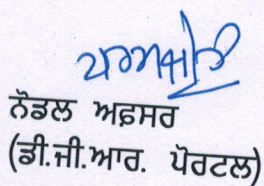 ਨੋਡਲ ਅਫ਼ਸਰ
(ਡੀ.ਜੀ.ਆਰ. ਪੋਰਟਲ)